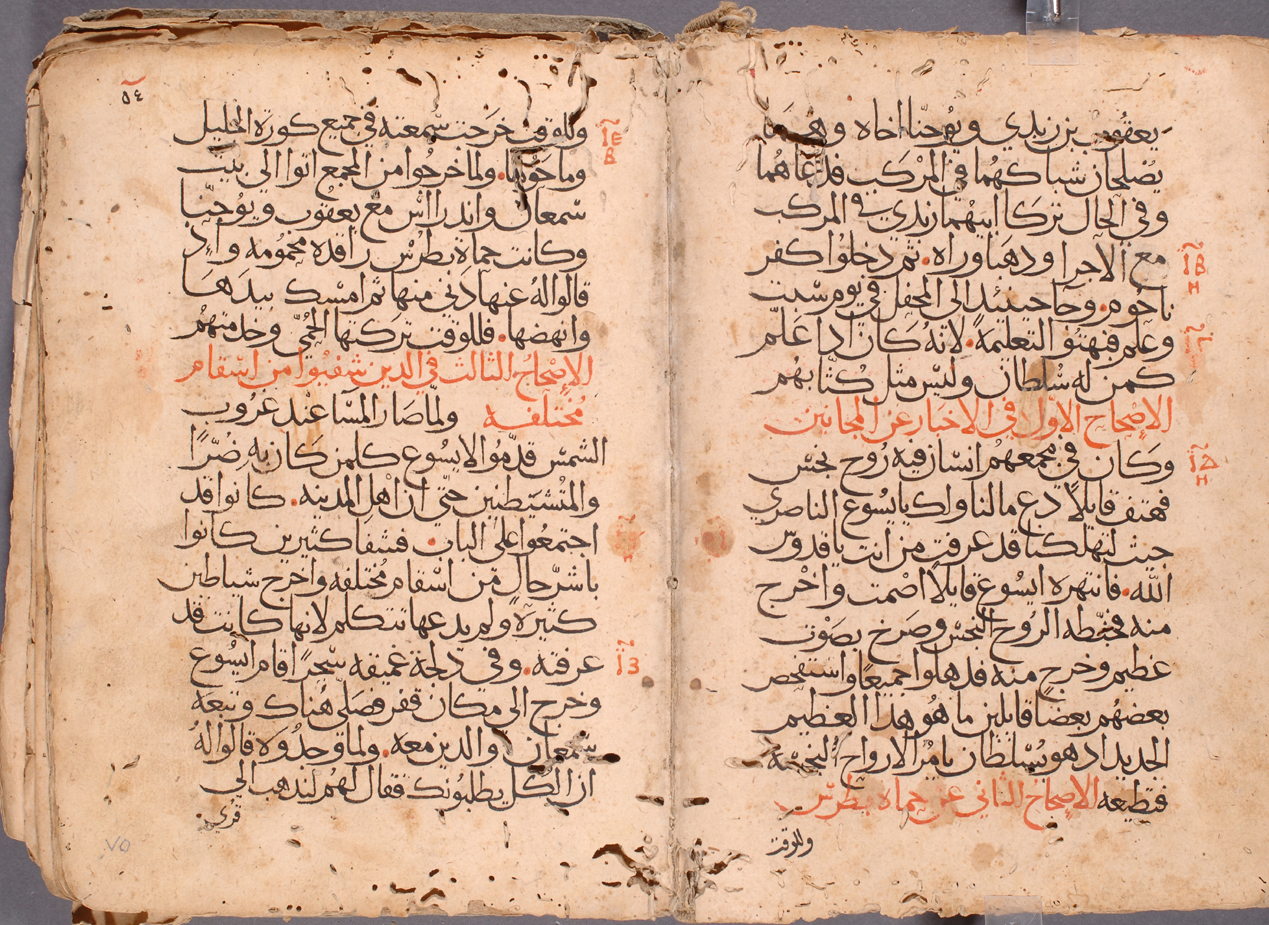 يعقوب بن زبدي ويوحنا اخاه وهما
يصلحان شباكهما في المركب فدعاهما
وفي الحال تركا ابيهما زبدي في المركب
مع الاجرا وذهبا وراه. ثم دخلوا كفر
ناحوم. وجا حينئذ الى المحفل في يوم سبت
وعلم فبهتوا لتعلتمه. لانه كان اذا علم
كمن له سلطان وليس مثل كتابهم
الاصحاح الاول في الاخبار عن المجانين
وكان في مجمعهم انسان فيه روح نجس
فهتف قايلا دع مالنا ولك يايسوع الناصري
جيت لتهلكنا قد عرفت من انت ياقدوس
الله. فانتهره ايسوع قايلا اصمت واخرج
منه فخبطه الروح النجس وصرخ بصوت
عظيم وخرج منه فذهلوا جميعا واستفحص
بعضهم بعضا قايلين ما هو هذا العظيم
الجديد اذ هو بسلطان يامر الارواح النجسة
فتطيعه الاصحاح الثاني عن حماة بطرس
وللوقت
٥٤
وللوقت خرجت سمعته في جميع كورة الجليل
وما حولها. ولما خرجوا من المجمع اتوا الى بيت
سمعان واندراس مع يعقوب ويوحنا
وكانت حماة بطرس راقده محمومه واذ
قالوا له عنها دني منها ثم امسك بيدها
وانهضها. فللوقت تركتها الحمي وخدمتهم
الاصحاح الثالث في الذين شفيوا من اسقام
مختلفه ولما صار المسا عند غروب
الشمس قدموا لايسوع كلمن كان به ضرا
والمتشيطنين حتى ان اهل المدينه. كانوا قد
اجتمعوا على الباب. فشفا كثيرين كانوا
باشر حال من اسقام مختلفه واخرج شياطين
كثيرة ولم يدعها تتكلم لانها كانت قد
عرفته. وفي دلجة عميقه سحرا قام ايسوع
وخرج الى مكان قفر فصلى هناك وتبعه
سمعان والذين معه. ولما وجدوه قالوا له
ان الكل يطلبونك فقال لهم لنذهب الى
قري
٧٥